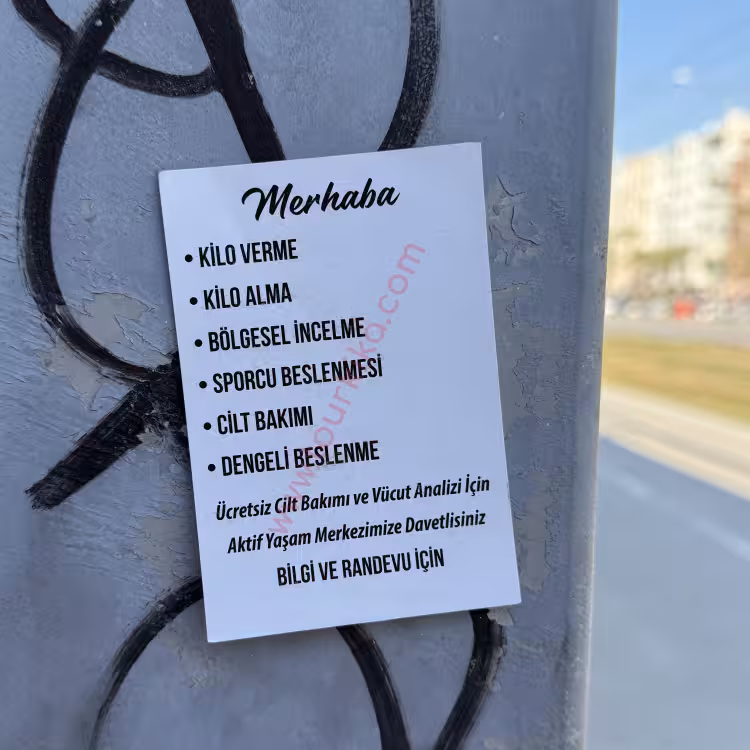 Merhaba
• KİLO VERME
• KİLO ALMA
• BÖLGESEL İNCELME
• SPORCU BESLENMESİ
• CİLT BAKIMI
• DENGELİ BESLENME
Ücretsiz Cilt Bakımı ve Vücut Analizi İçin
Aktif Yaşam Merkezimize Davetlisiniz
BİLGİ VE RANDEVU İÇİN